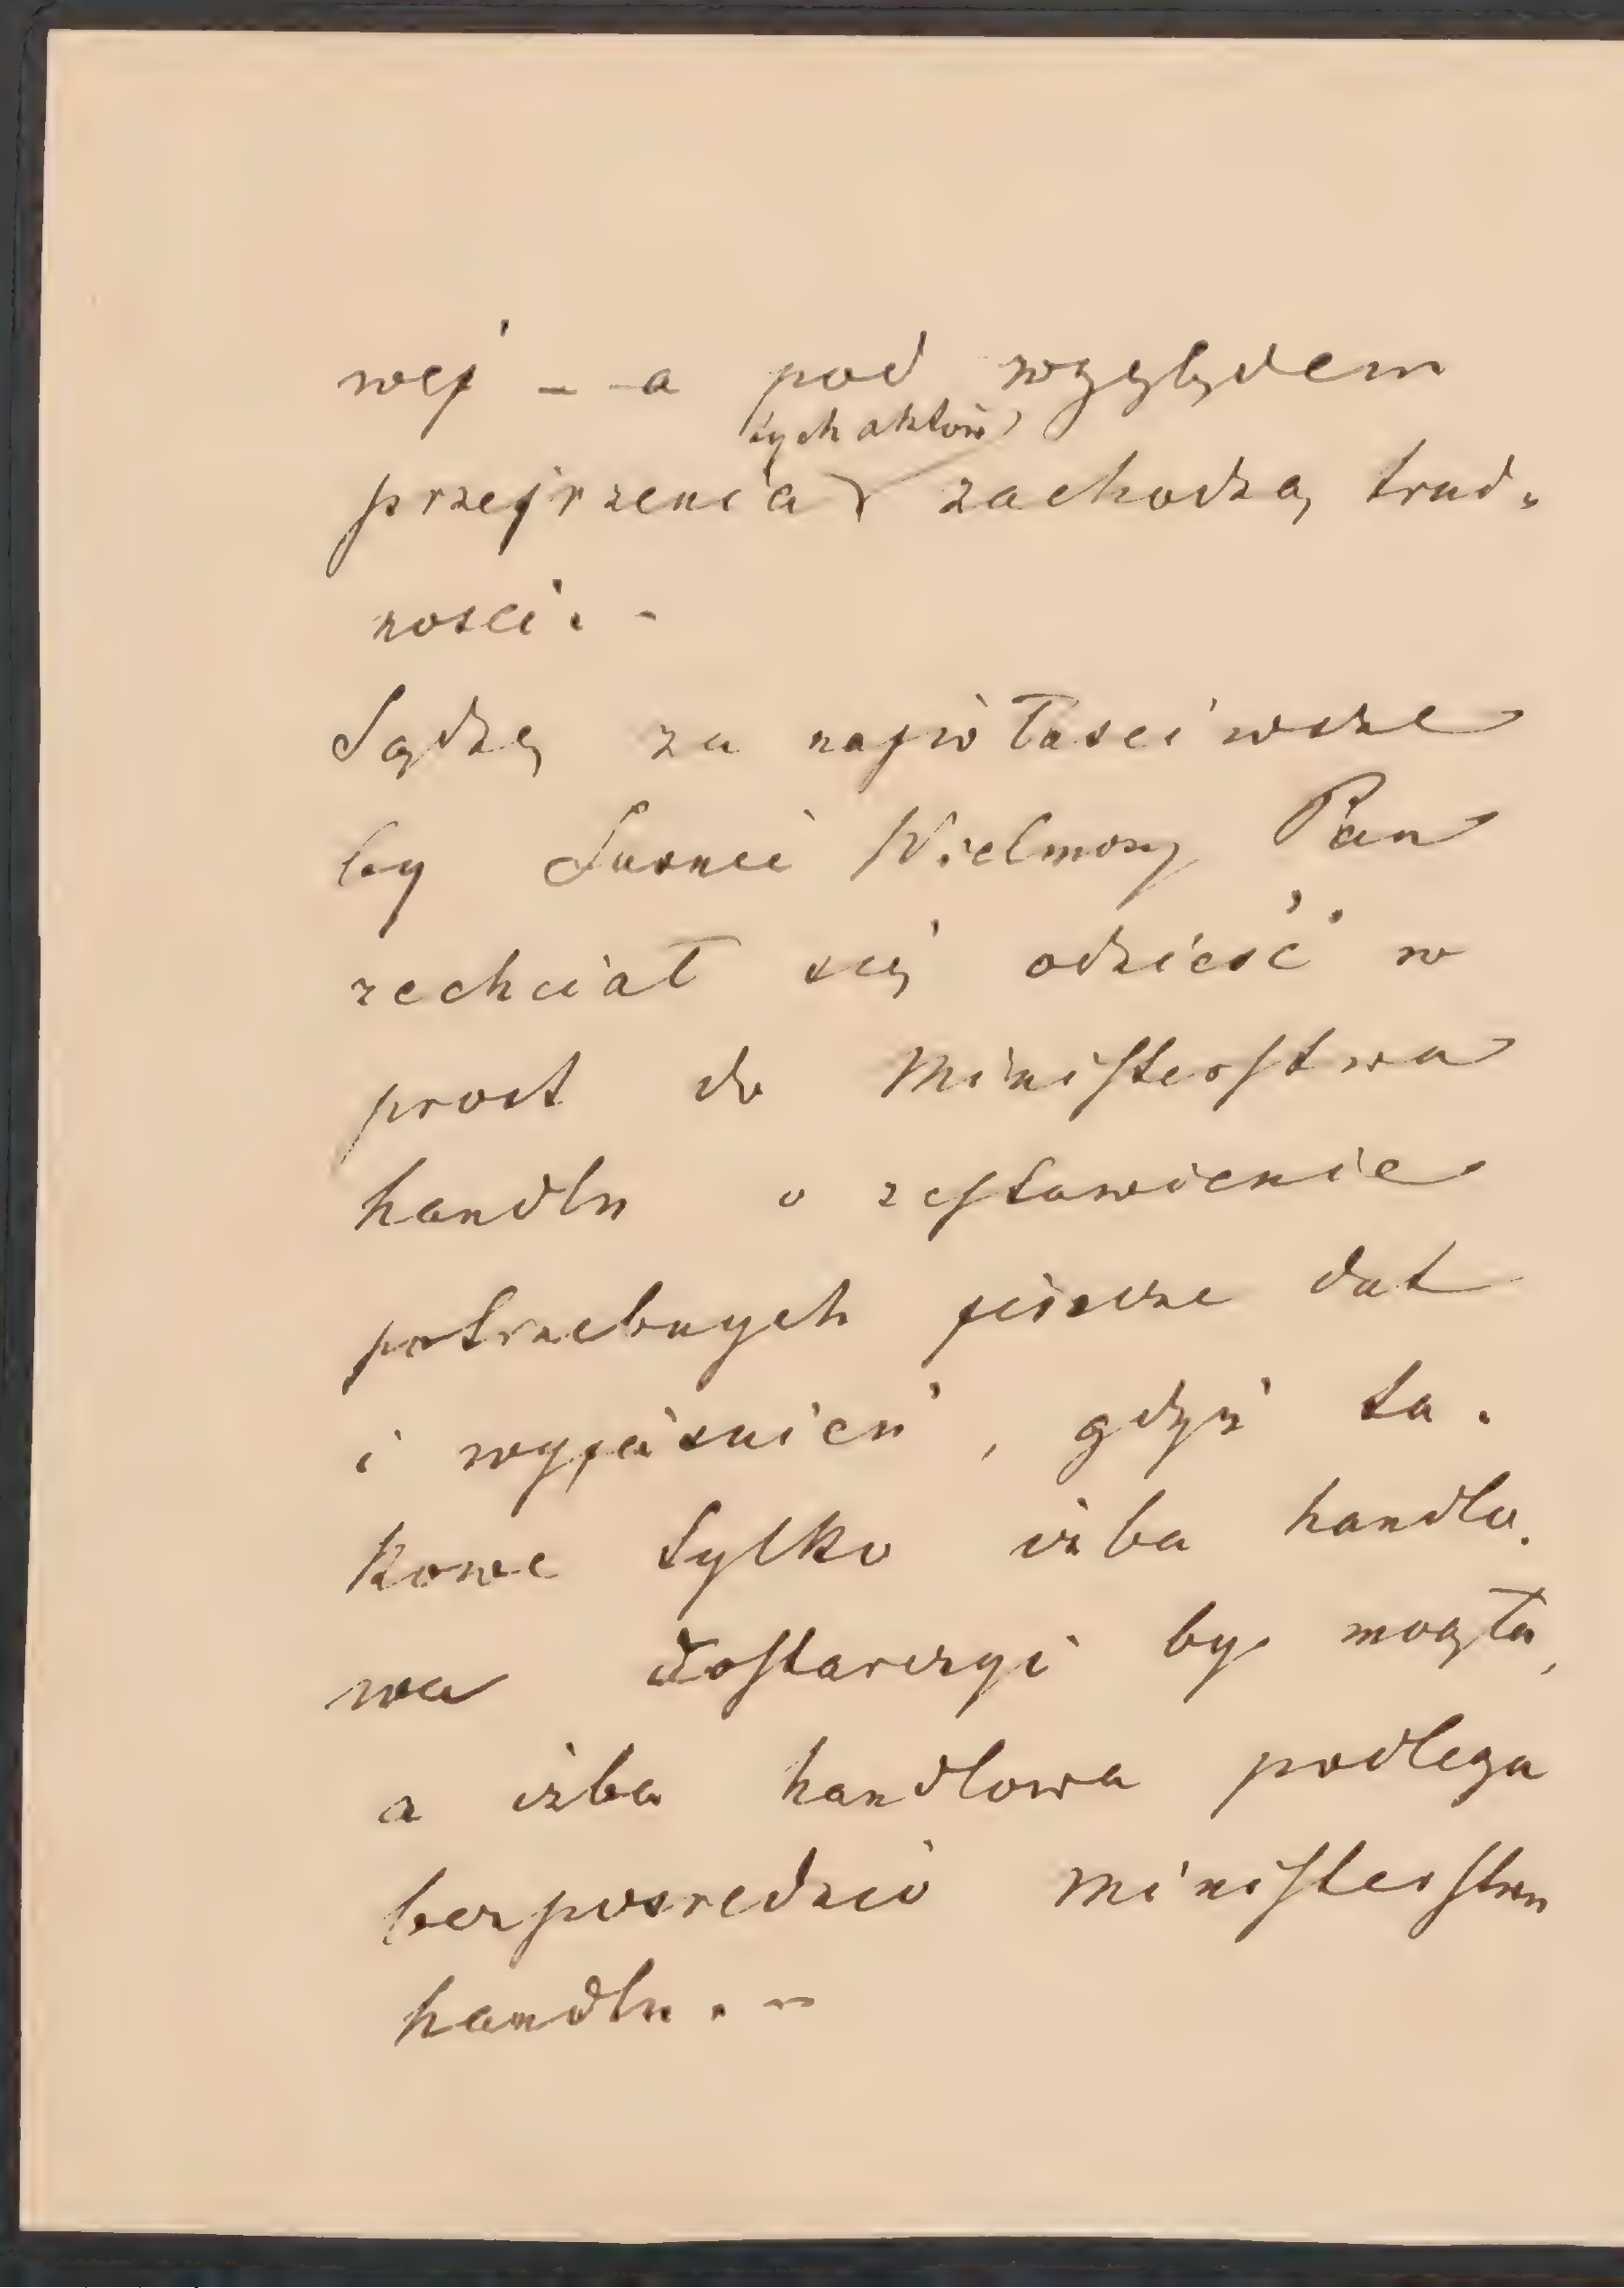 wej - a pod względem
tych aktów
przejrzenia zachodzą trud-
ności. -
Sądzę za najwłaściwsze
by Wielmożny Pan
zechciał się odnieść w
prost do Ministerstwa
handlu o zestawienie
potrzebnych jeszcze dat
i wyjaśnień, gdyż ta-
kowe tylko izba handlo-
wa dostarczyć by mogła,
a izba handlowa podlega
bezpośrednio Ministerstwu
handlu. -